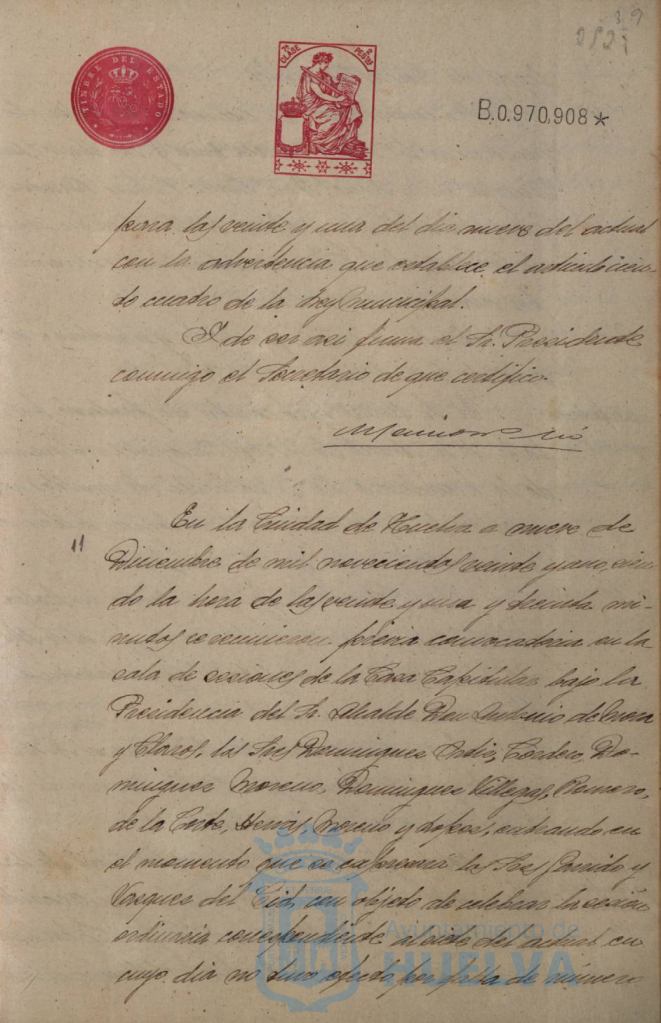 TIMBRE DEL ESTADO
7ª CLASE
PESETAS
B.0.970,908*
para las veinte y una del dia nueve del actual
con la advertencia que establece el articulo cien-
to cuatro de la Ley municipal.
Y de ser asi firma el Sr. Presidente
conmigo el Secretario de que certifico.
11
En la Ciudad de Huelva a nueve de
Diciembre de mil novecientos veinte y uno, sien-
do la hora de las veinte y una y treinta mi-
nutos se reunieron previa convocatoria en la
sala de sesiones de la Casa Capitular bajo la
Presidencia del Sr. Alcalde Don Antonio de Mora
y Claros, los Sres Dominguez Ortiz, Cordero, Do-
minguez Moreno, Dominguez Villegas, Romero,
de la Corte, Moreno y Lopez, entrando en
el momento que se expresará los Sres Garrido y
Vazquez del Cid, con objeto de celebrar la sesión
ordinaria correspondiente al siete del actual en
cuyo dia no tuvo efecto por falta de número
Ayuntamiento de
HUELVA